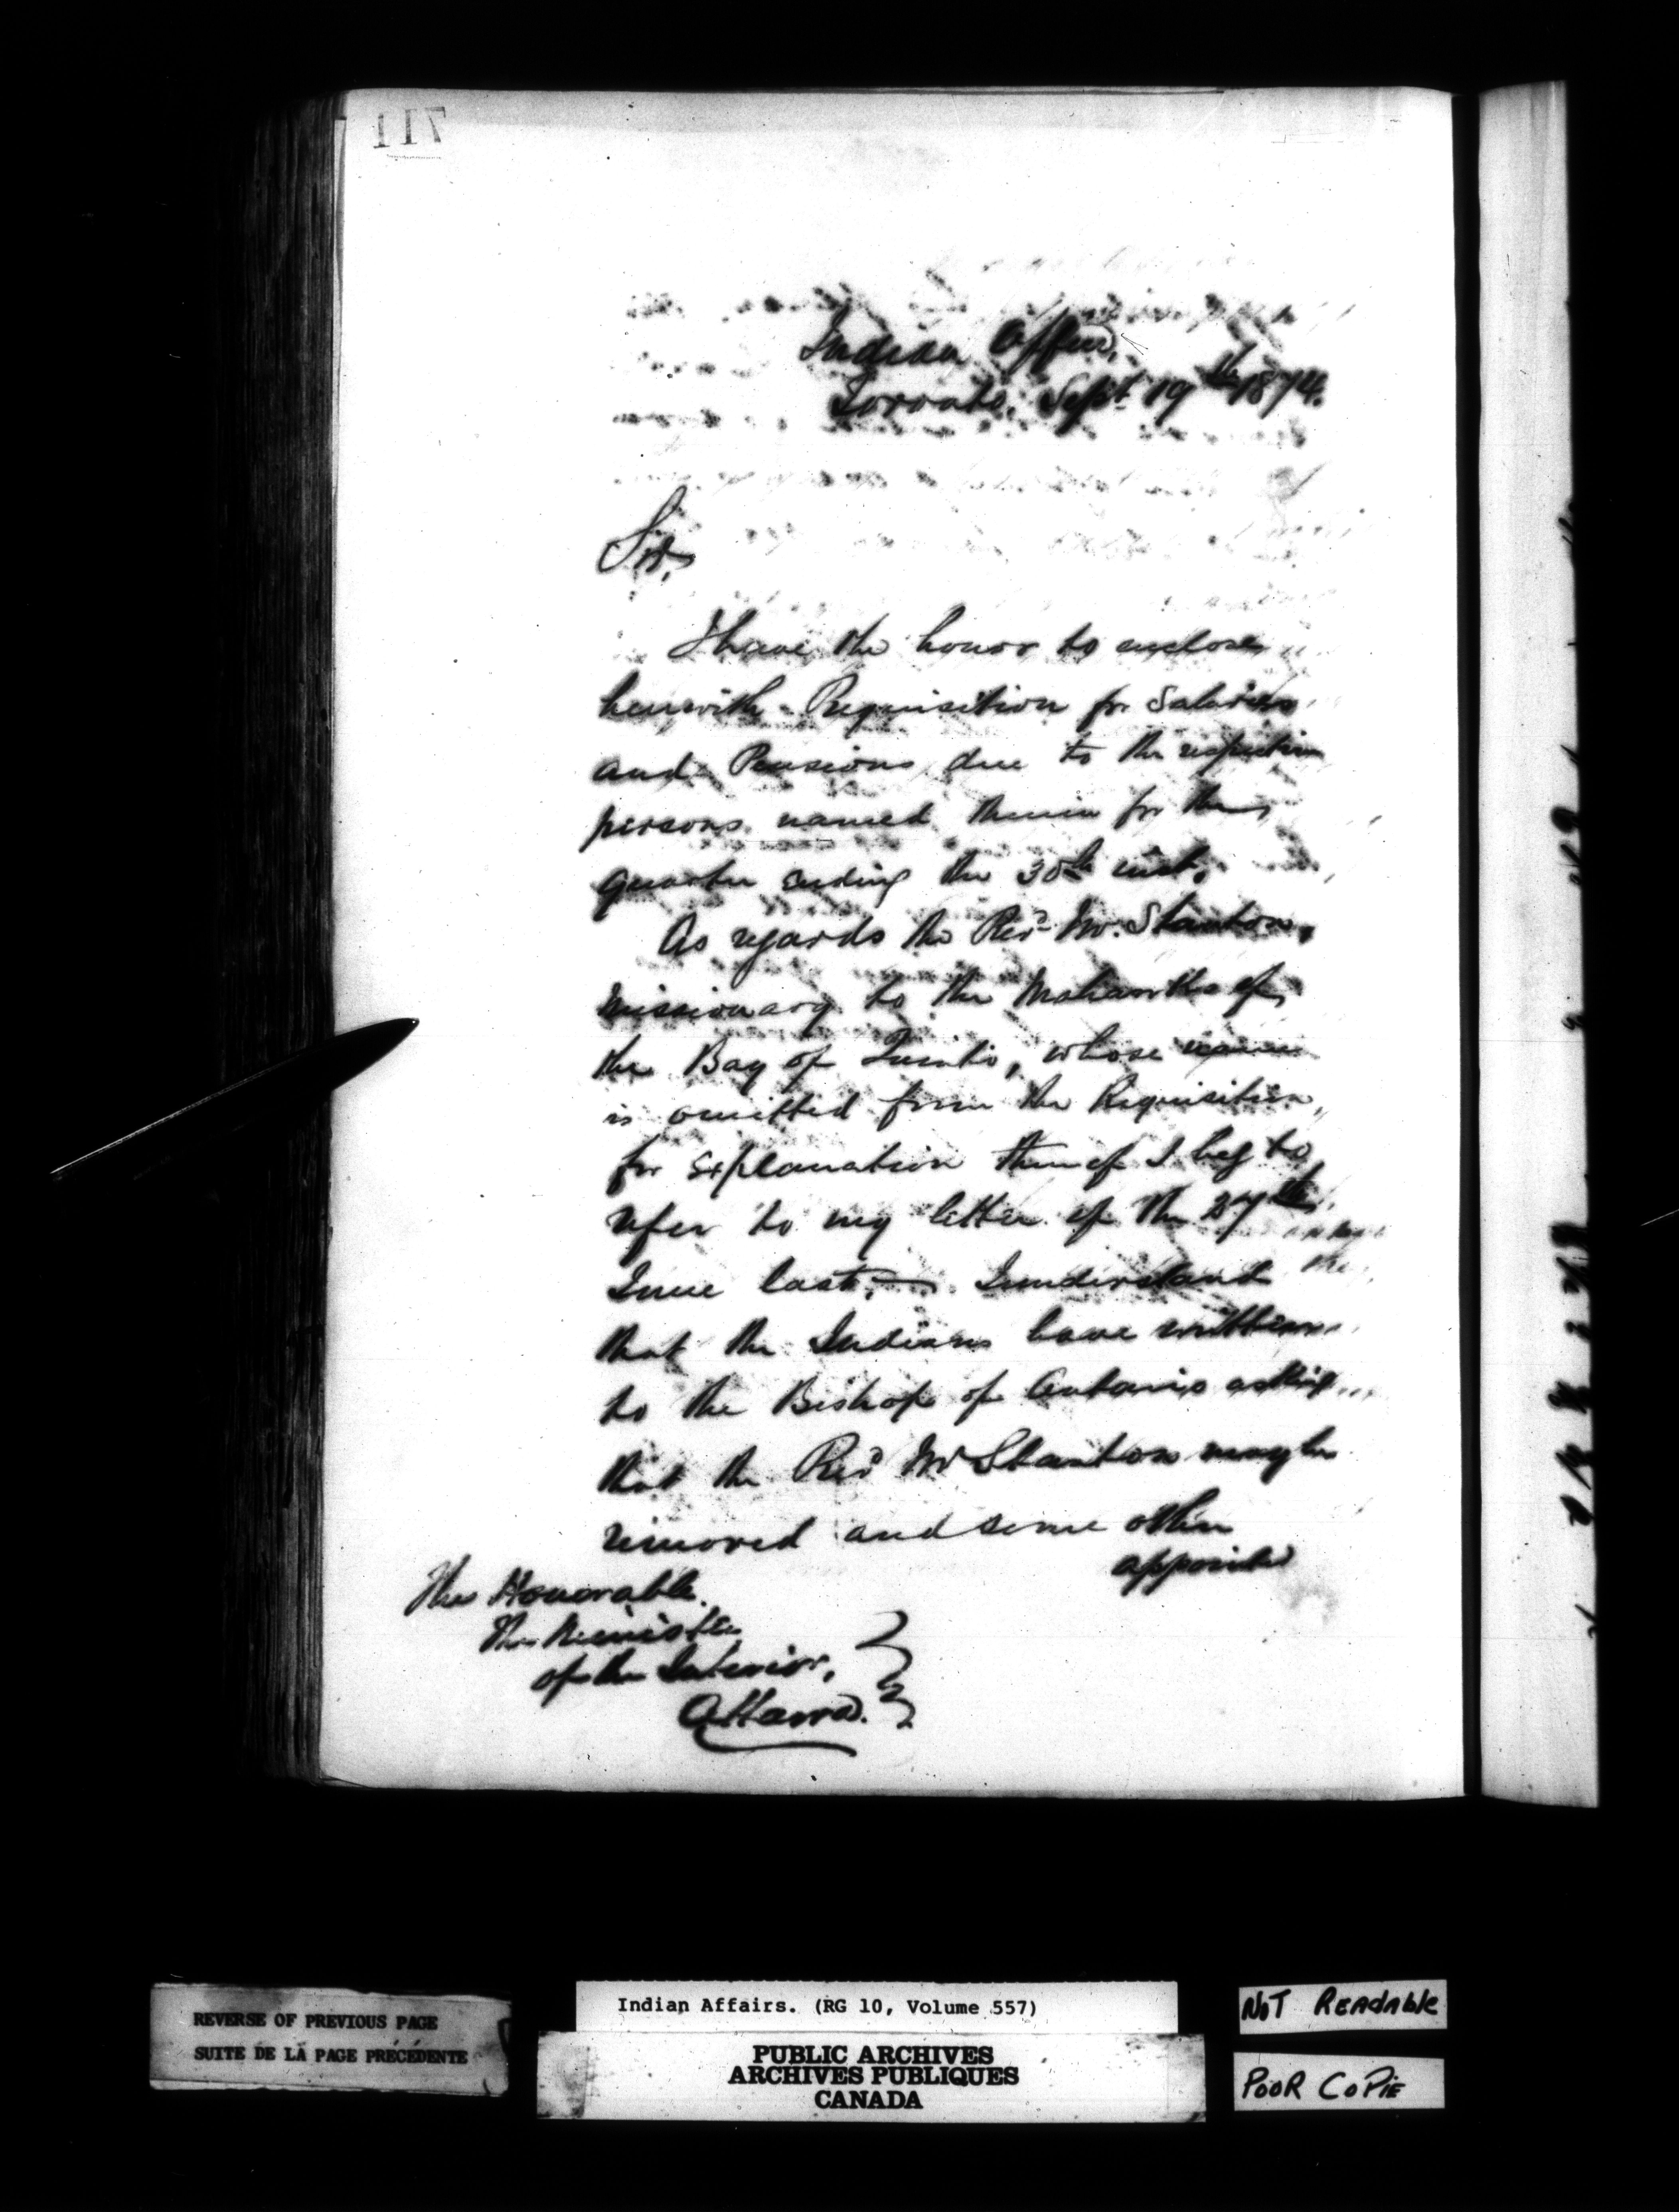 117
Indian Office,
Toronto, Sept 19th 1874.
Sir,
I have the honor to enclose
herewith Requisition for Salaries
and Pensions due to the respective
persons named therein for the
quarter ending the 30th inst.
As regards the Revd Mr. Stanton,
Missionary to the Mohawks of
the Bay of Quinte, whose name
is omitted from the Requisition,
for explanation thereof I beg to
refer to my letter of the 27th
June last. — I understand
that the Indians have written
to the Bishop of Ontario asking
that the Revd Mr Stanton may be
removed and some other
appointed
The Honorable
The Minister
of the Interior,
Ottawa.
REVERSE OF PREVIOUS PAGE
SUITE DE LA PAGE PRÉCÉDENTE
Indian Affairs. (RG 10, Volume 557)
PUBLIC ARCHIVES
ARCHIVES PUBLIQUES
CANADA
NOT READABLE
POOR COPIE